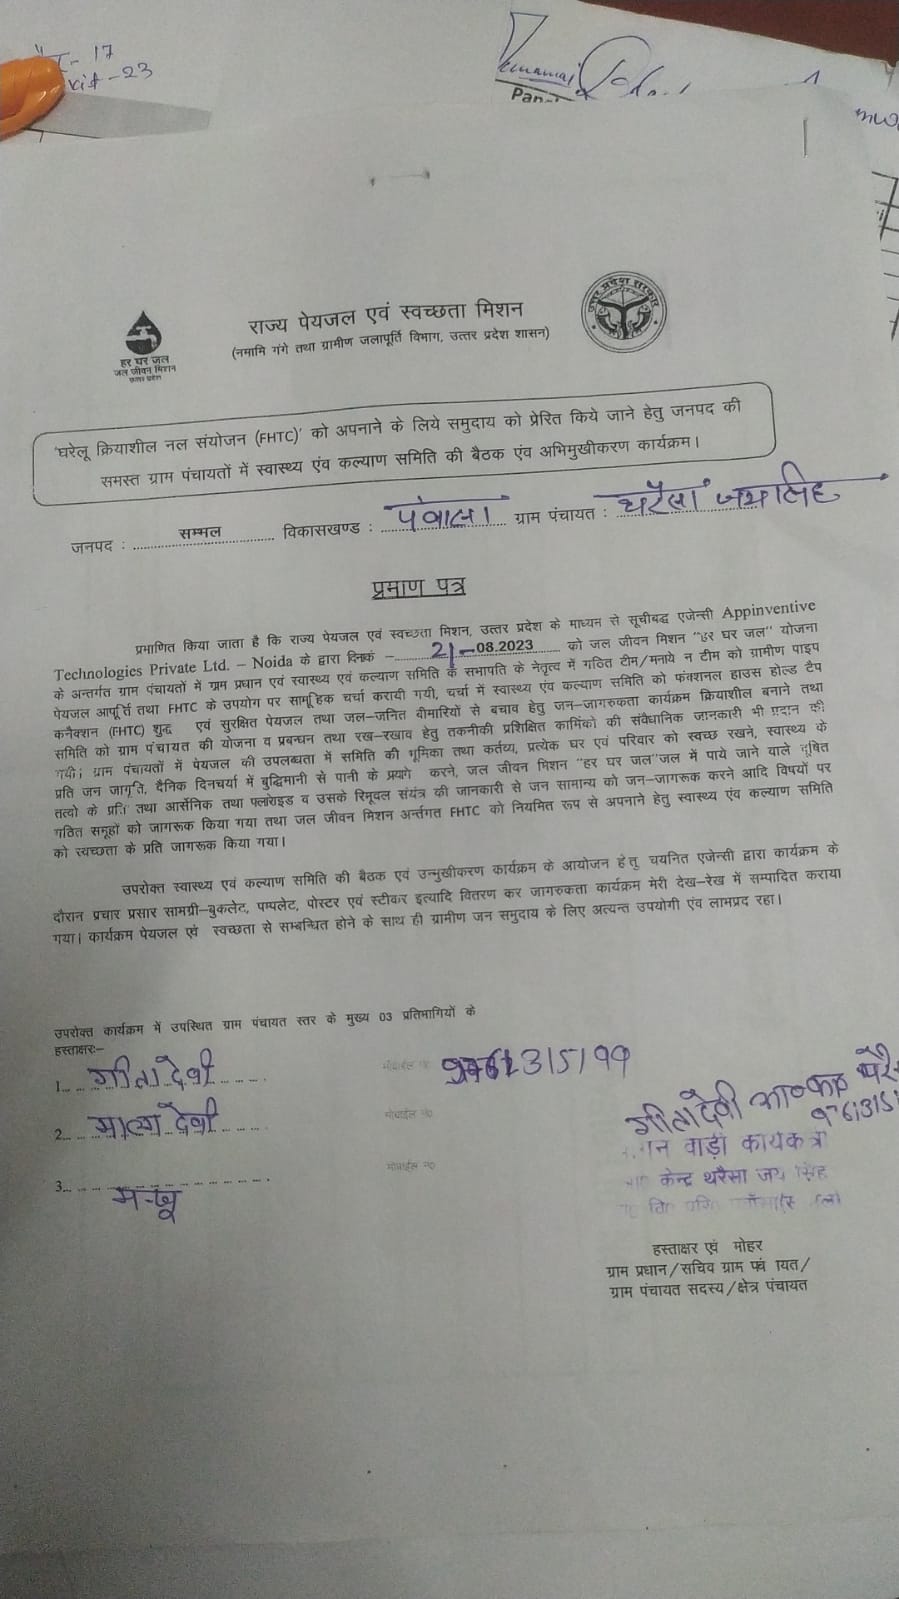 - 17
kit - 23
राज्य पेयजल एवं स्वच्छता मिशन
(नमामि गंगे तथा ग्रामीण जलापूर्ति विभाग, उत्तर प्रदेश शासन)
उत्तर प्रदेश सरकार
हर घर जल
जल जीवन मिशन
उत्तर प्रदेश
'घरेलू क्रियाशील नल संयोजन (FHTC)' को अपनाने के लिये समुदाय को प्रेरित किये जाने हेतु जनपद की
समस्त ग्राम पंचायतों में स्वास्थ्य एंव कल्याण समिति की बैठक एंव अभिमुखीकरण कार्यक्रम।
जनपद : सम्भल विकासखण्ड : पंवासा ग्राम पंचायत : थरैसा जयसिंह
प्रमाण पत्र
प्रमाणित किया जाता है कि राज्य पेयजल एवं स्वच्छता मिशन, उत्तर प्रदेश के माध्यन से सूचीबद्ध एजेन्सी Appinventive
Technologies Private Ltd. – Noida के द्वारा दिनांक – 21-08.2023 को जल जीवन मिशन "हर घर जल" योजना
के अन्तर्गत ग्राम पंचायतों में ग्राम प्रधान एवं स्वास्थ्य एवं कल्याण समिति के सभापति के नेतृत्व में गठित टीम/मनाये न टीम को ग्रामीण पाइप
पेयजल आपूर्त्ति तथा FHTC के उपयोग पर सामूहिक चर्चा करायी गयी, चर्चा में स्वास्थ्य एंव कल्याण समिति को फंक्शनल हाउस होल्ड टैप
कनैक्शन (FHTC) शुद्ध एवं सुरक्षित पेयजल तथा जल-जनित बीमारियों से बचाव हेतु जन-जागरुकता कार्यक्रम क्रियाशील बनाने तथा
समिति को ग्राम पंचायत की योजना व प्रबन्धन तथा रख-रखाव हेतु तकनीकी प्रशिक्षित कार्मिकों की संवैधानिक जानकारी भी प्रदान की
गयी; ग्राम पंचायतों में पेयजल की उपलब्धता में समिति की भूमिका तथा कर्तव्य, प्रत्येक घर एवं परिवार को स्वच्छ रखने, स्वास्थ्य के
प्रति जन जागृति, दैनिक दिनचर्या में बुद्धिमानी से पानी के प्रयोग करने, जल जीवन मिशन "हर घर जल"जल में पाये जाने वाले दूषित
तत्वो के प्रति तथा आर्सेनिक तथा फ्लोराइड व उसके रिमूवल संयंत्र की जानकारी से जन सामान्य को जन-जागरूक करने आदि विषयों पर
गठित समूहों को जागरूक किया गया तथा जल जीवन मिशन अर्न्तगत FHTC को नियमित रूप से अपनाने हेतु स्वास्थ्य एंव कल्याण समिति
को स्वच्छता के प्रति जागरूक किया गया।
उपरोक्त स्वास्थ्य एवं कल्याण समिति की बैठक एवं उन्मुखीकरण कार्यक्रम के आयोजन हेतु चयनित एजेन्सी द्वारा कार्यक्रम के
दौरान प्रचार प्रसार सामग्री-बुकलेट, पम्पलेट, पोस्टर एवं स्टीकर इत्यादि वितरण कर जागरुकता कार्यक्रम मेरी देख-रेख में सम्पादित कराया
गया। कार्यक्रम पेयजल एवं स्वच्छता से सम्बन्धित होने के साथ ही ग्रामीण जन समुदाय के लिए अत्यन्त उपयोगी एंव लाभप्रद रहा।
उपरोक्त कार्यक्रम में उपस्थित ग्राम पंचायत स्तर के मुख्य 03 प्रतिभागियों के
हस्ताक्षरः-
1. गीता देवी मोबाईल न०
2. माला देवी मोबाईल न०
3. मोबाईल न०
गीता देवी
कार्यकत्री
केन्द्र थरैसा जय सिंह
हस्ताक्षर एवं मोहर
ग्राम प्रधान/सचिव ग्राम पंचायत/
ग्राम पंचायत सदस्य/क्षेत्र पंचायत